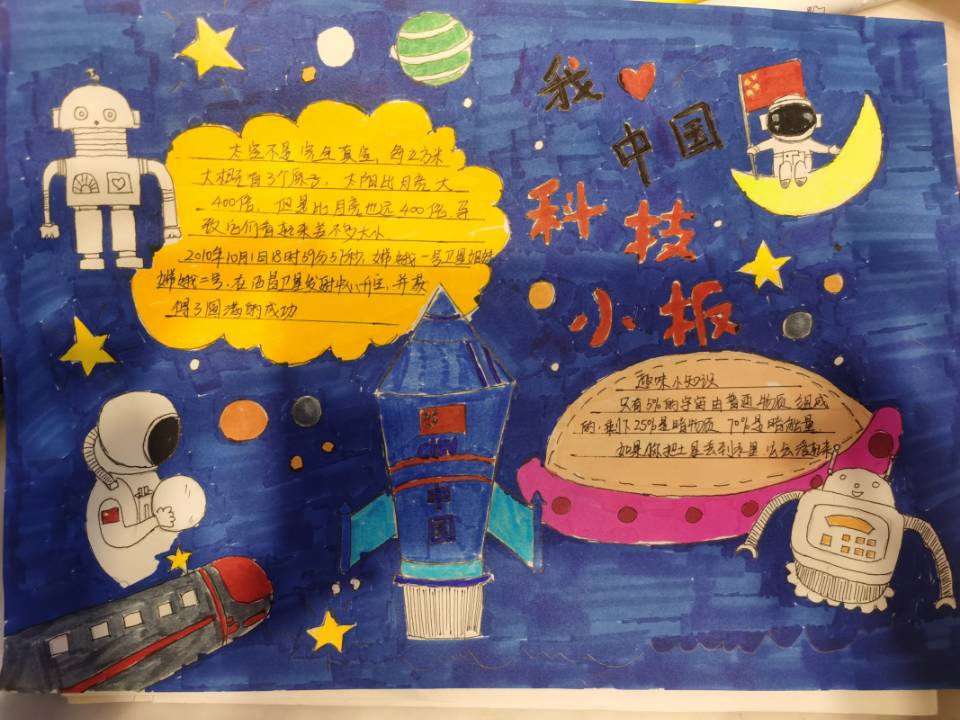 我
中国
科技
小板
太空不是完全真空，每立方米
大概还有3个原子，太阳比月亮大
400倍，但是比月亮也远400倍，导
致它们看起来差不多大小
2010年10月1日18时59分57秒，嫦娥一号卫星姐妹
嫦娥二号，在西昌卫星发射中心升空，并获
得了圆满的成功
趣味小知识
只有5%的宇宙由普通物质组成
的，剩下25%是暗物质 70%是暗能量
如果你把土星丢到水里 它会浮起来
中
国